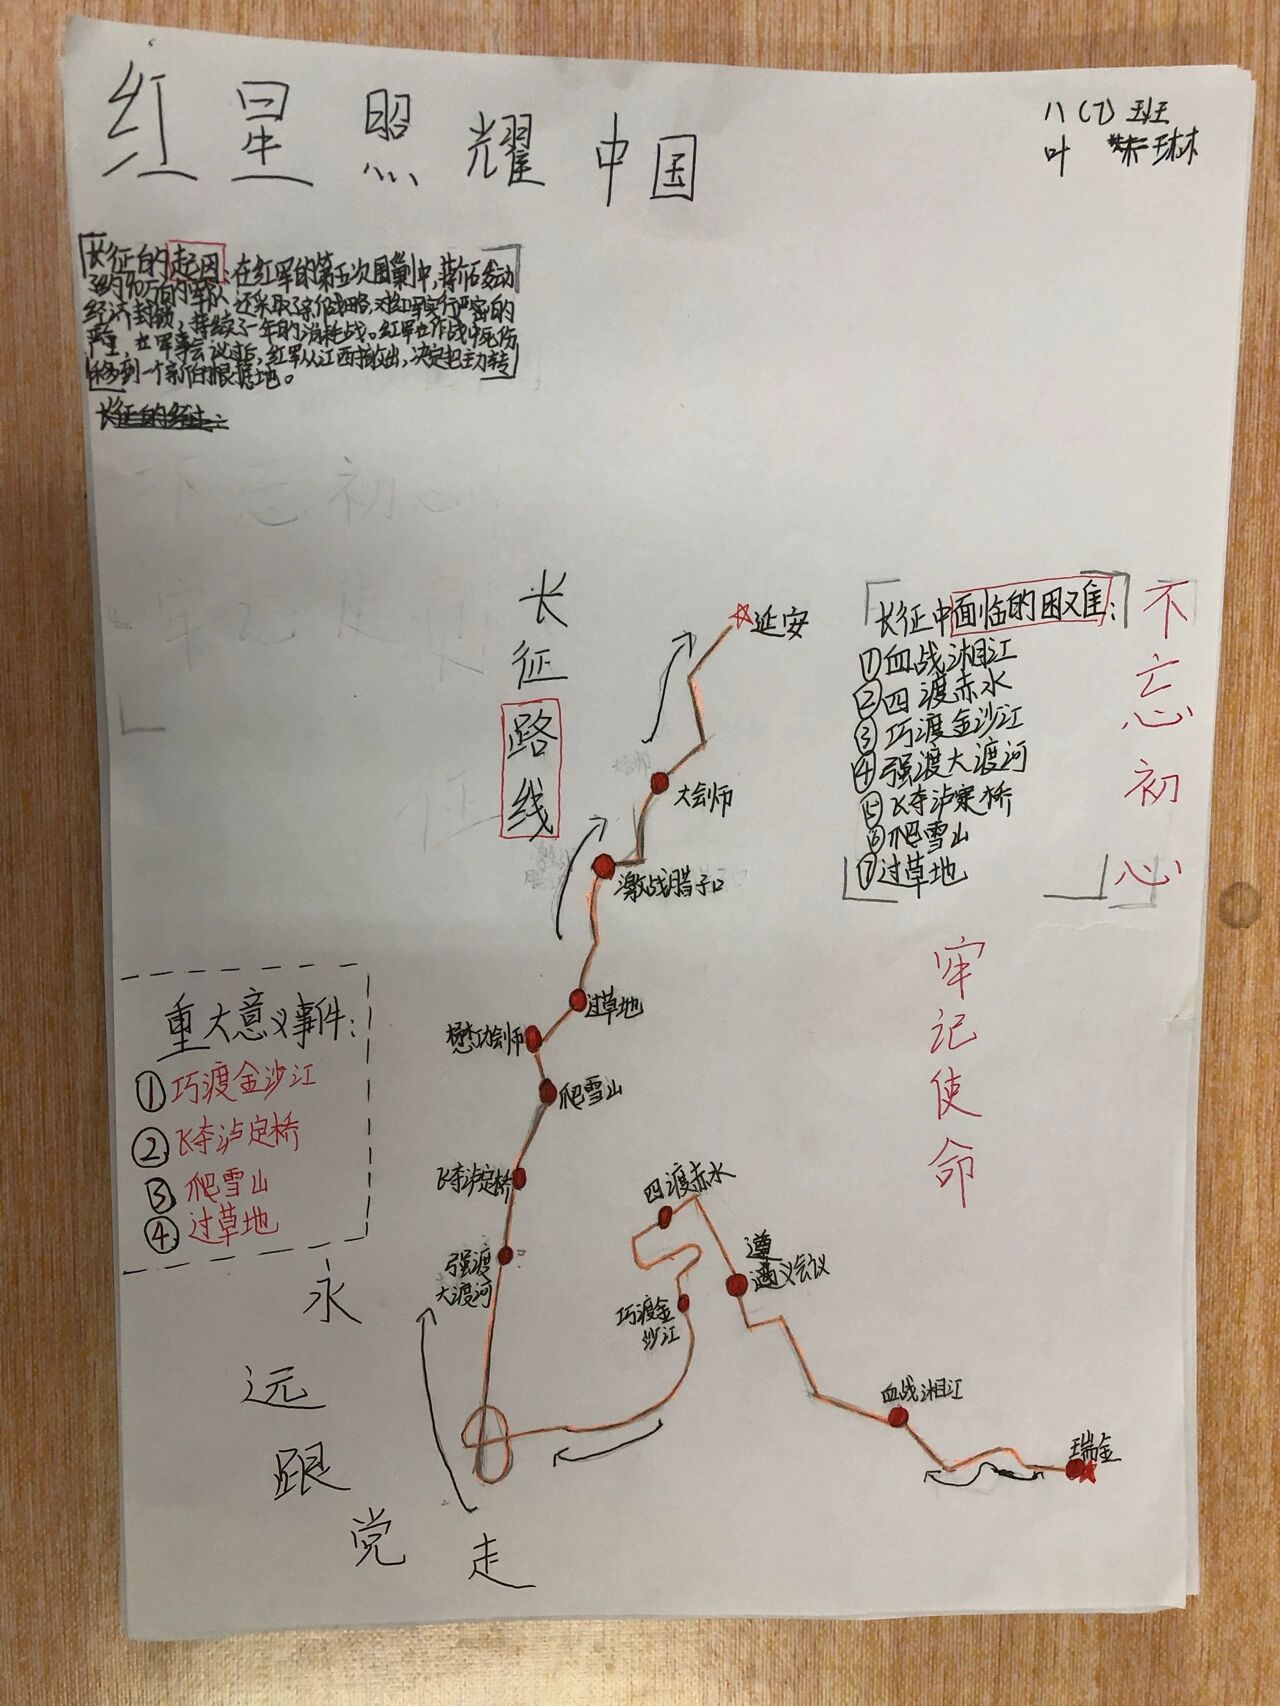 红星照耀中国
八(7)班
叶
长征的起因：在红军的第五次围剿中，蒋介石发动
了约90万的军队，还采取了新战略，对红军实行严密的
经济封锁，持续了一年的消耗战。红军在作战中死伤
严重，在军事会议过后，红军从江西撤出，决定把主力转
移到一个新的根据地。
长征的经过：
不忘初心
长征路线
延安
大会师
激战腊子口
过草地
懋功会师
爬雪山
飞夺泸定桥
强渡
大渡河
四渡赤水
遵
遵义会议
巧渡金
沙江
血战湘江
瑞金
长征中面临的困难：
①血战湘江
②四渡赤水
③巧渡金沙江
④强渡大渡河
⑤飞夺泸定桥
⑥爬雪山
⑦过草地
不忘初心
牢记使命
重大意义事件：
①巧渡金沙江
②飞夺泸定桥
③爬雪山
④过草地
永远跟党走